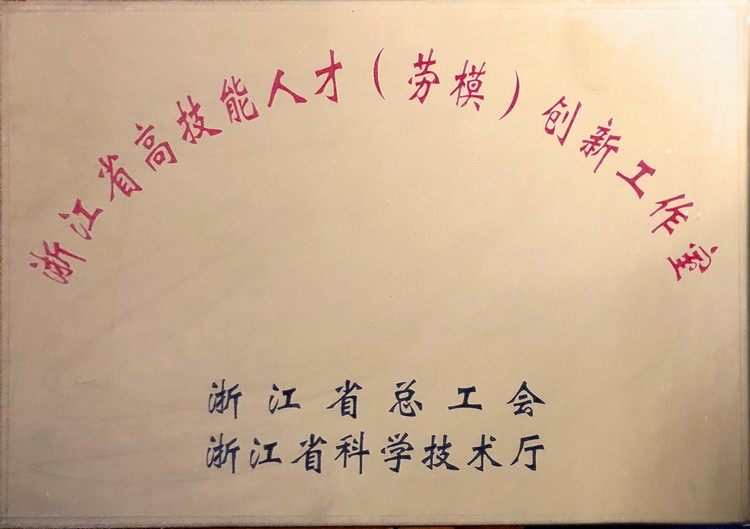 浙江省高技能人才（劳模）创新工作室
浙江省总工会
浙江省科学技术厅